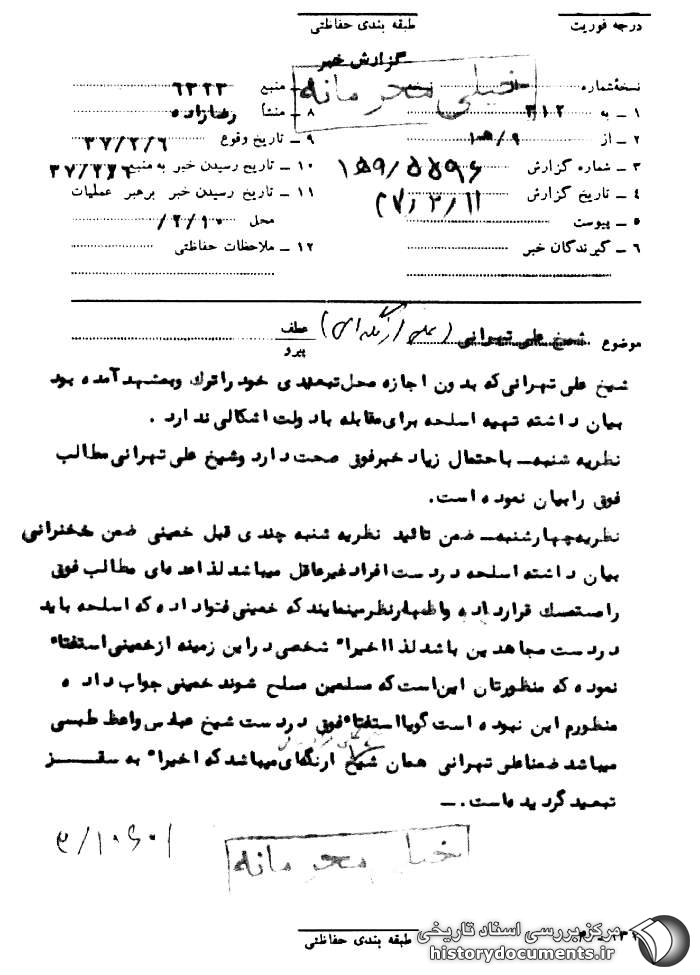 درجه فوریت
طبقه بندی حفاظتی
گزارش خبر
خیلی محرمانه
نسخهٔ شماره از نسخه
۱ ـ به ۳۱۲
۲ ـ از
۳ ـ شماره گزارش
۴ ـ تاریخ گزارش ۳۷/۲/۱۱
۵ ـ پیوست
۶ ـ گیرندگان خبر
۷ ـ منبع ۶۳۲۳
۸ ـ منشأ رضازاده
۹ ـ تاریخ وقوع ۳۷/۲/۶
۱۰ ـ تاریخ رسیدن خبر به منبع ۳۷/۲/۶
۱۱ ـ تاریخ رسیدن خبر برهبر عملیات
محل ۲/۱۰/
۱۲ ـ ملاحظات حفاظتی
موضوع شیخ علی تهرانی
عطف
پیرو
شیخ علی تهرانی که بدون اجازه محل تبعیدی خود را ترك وبمشهد آمده بود
بیان داشته تهیه اسلحه برای مقابله با دولت اشکالی ندارد .
نظریه شنبه ـ با احتمال زیاد خبر فوق صحت دارد وشیخ علی تهرانی مطالب
فوق را بیان نموده است.
نظریه چهارشنبه ـ ضمن تائید نظریه شنبه چندی قبل خمینی ضمن سخنرانی
بیان داشته اسلحه در دست افراد غیرعاقل میباشد لذا عده ای مطالب فوق
را مستمسك قرار داده واظهار نظر مینمایند که خمینی فتوا داده که اسلحه باید
در دست مجاهدین باشد لذا اخیراً شخصی در این زمینه از خمینی استفتاء
نموده که منظورتان این است که مسلمین مسلح شوند خمینی جواب داده
منظورم این نبوده است گویا استفتاء فوق در دست شیخ عباس واعظ طبسی
میباشد ضمنا علی تهرانی همان شیخ ارنگه‌ای میباشد که اخیراً به سقـــز
تبعید گردیده است . ـ
خیلی محرمانه
طبقه بندی حفاظتی
مرکز بررسی اسناد تاریخی
historydocuments.ir